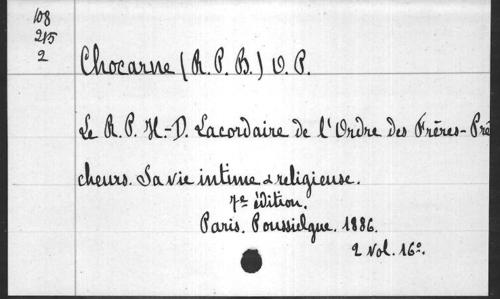 108
215
2
Chocarne (R. P. B.) O. P.
Le R. P. H.-D. Lacordaire de l'Ordre des Frères-Prê
cheurs. Sa vie intime & religieuse.
7e édition.
Paris. Poussielgue. 1886.
2 vol. 16º.